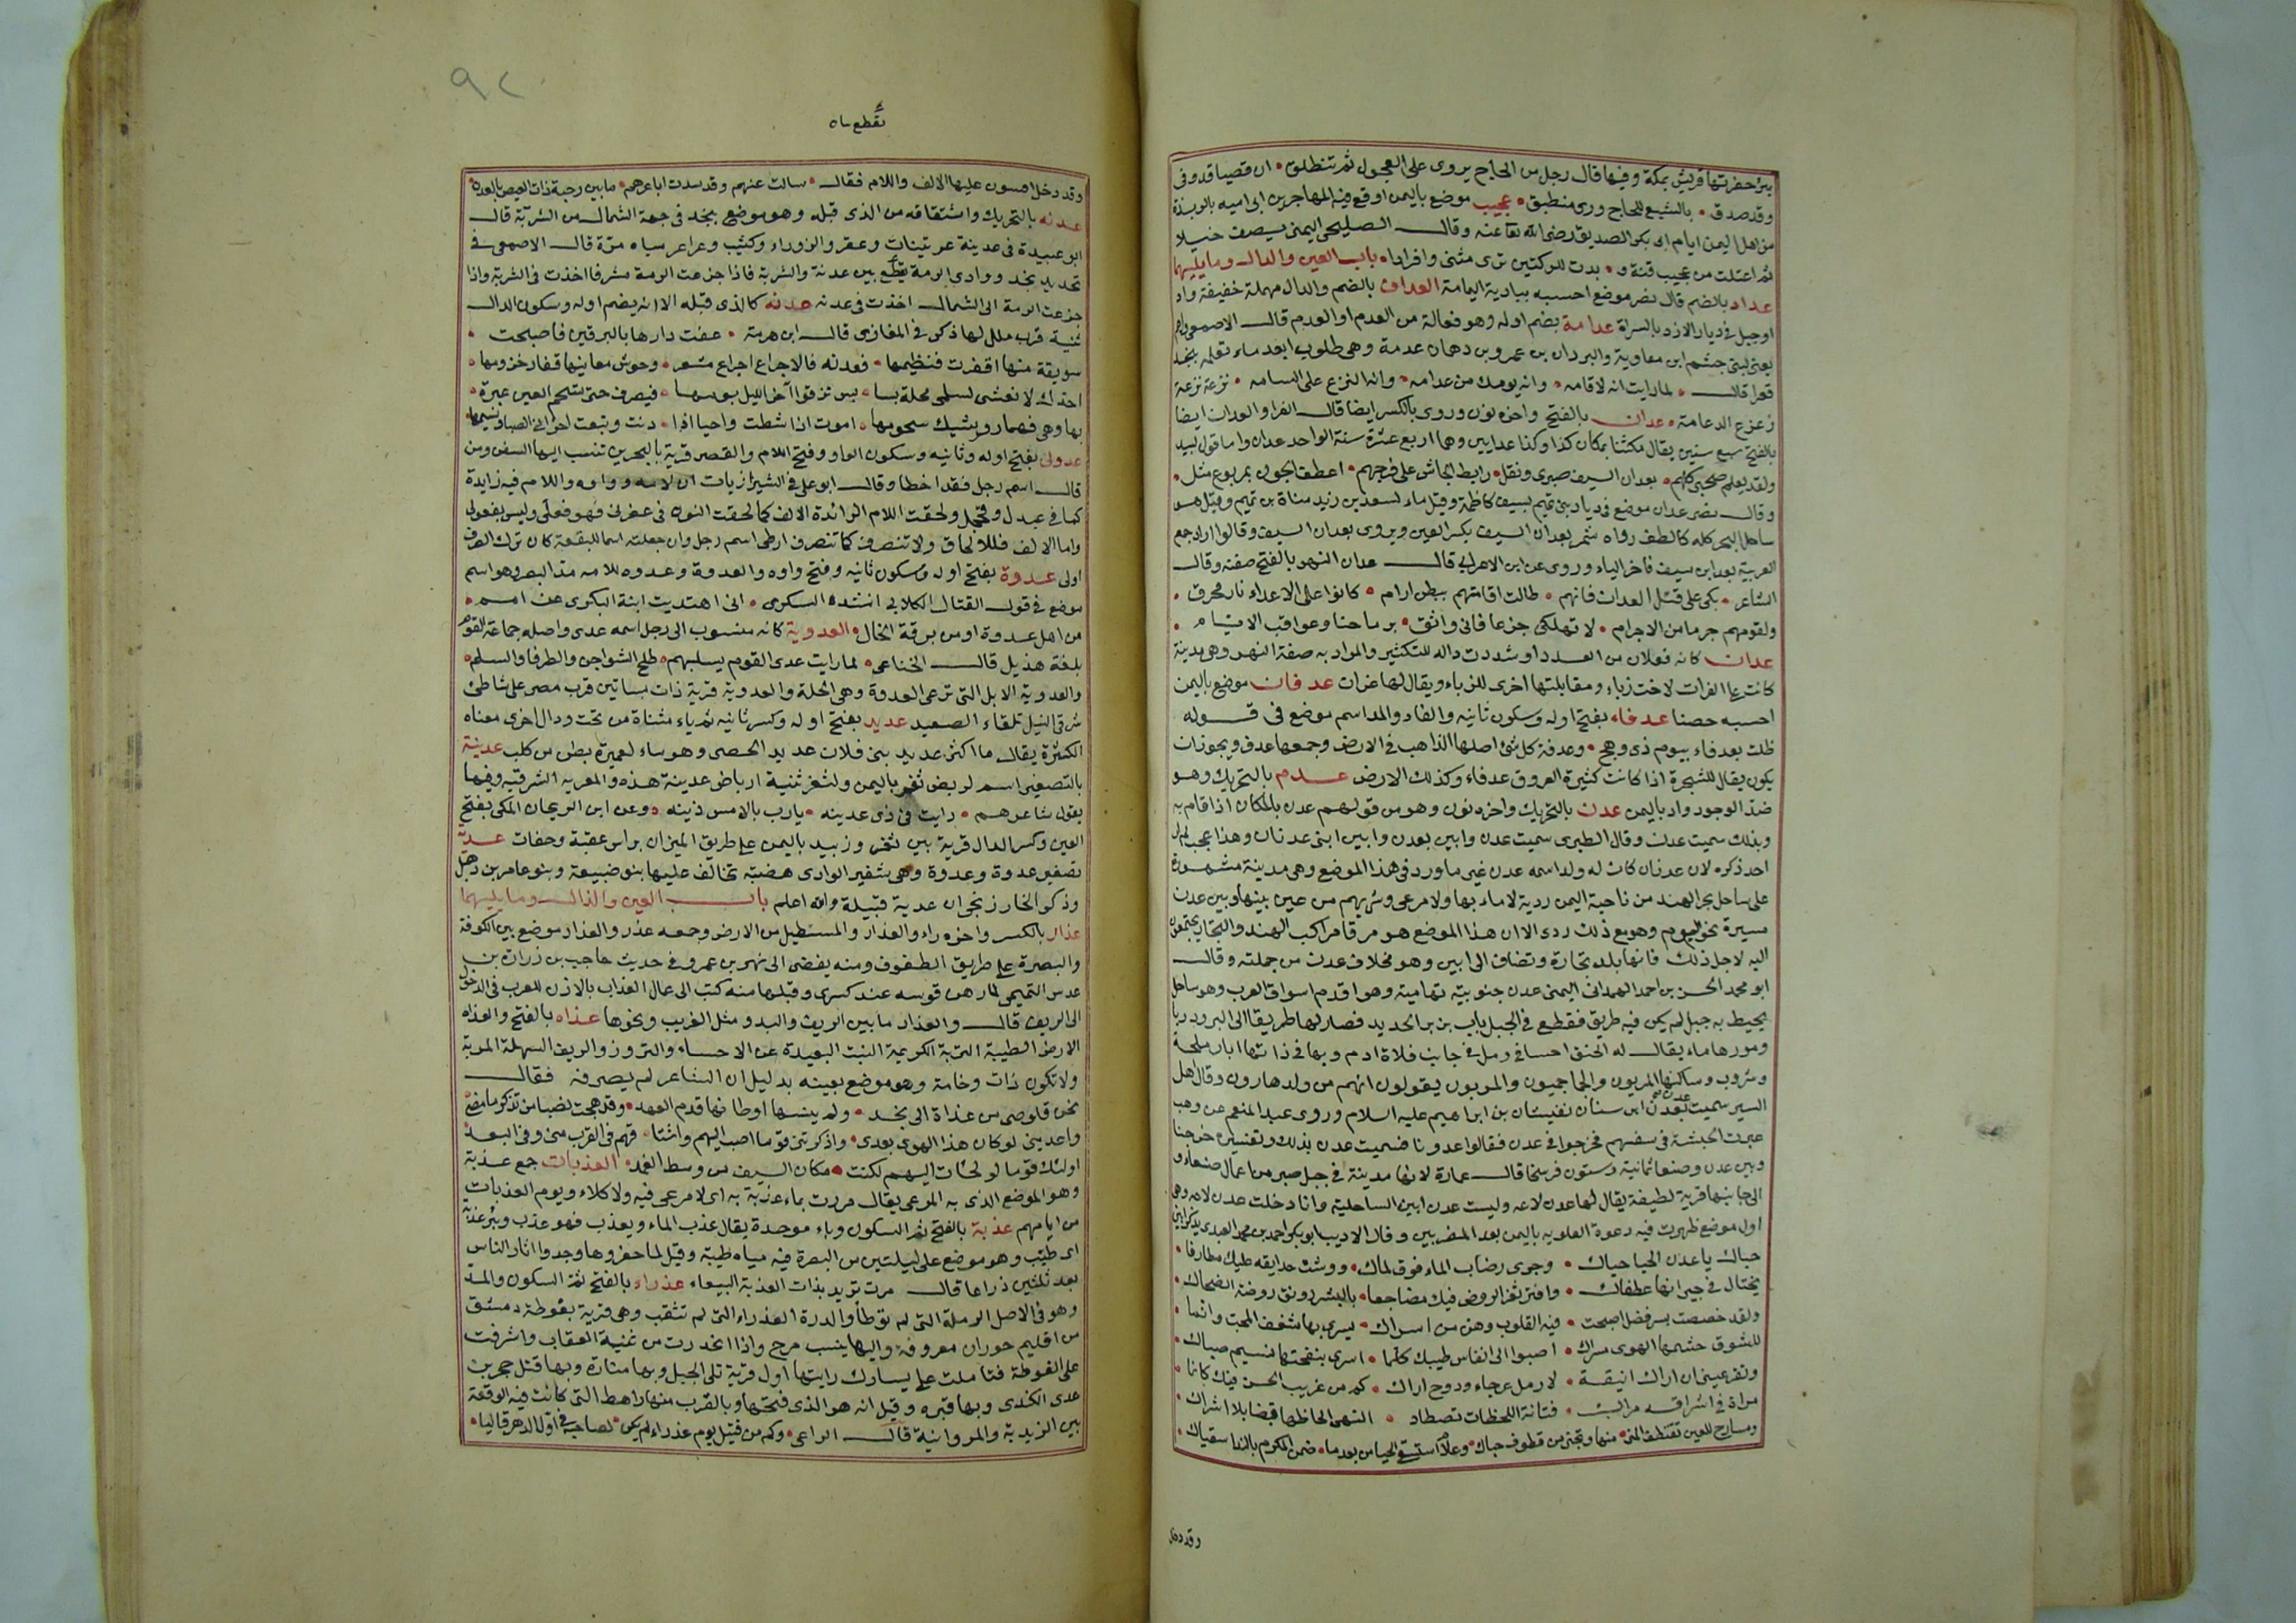 بئر حفرتها قريش بمكة وفيها قال رجل من الحاج يروى على العجول ثم تنطلق • ان قصيا قد وفى
وقد صدق • بالشبع للحاج ورى منطبق • عجيب موضع باليمن اوقع فيه المهاجرين ابى اميه بالربذة
من اهل اليمن ايام ابى بكر الصديق رضى الله تعا عنه وقال الصليحى اليمنى يصف خيلا
ثم اعتلت من عجيب قنة و • بدت للوكتين ترى مثنى وافرادا • باب العين والدال وما يليهما
عداد بالضم قال نصر موضع احسبه ببادية اليمامة العداف بالضم والدال مهملة خفيفة واد
او جبل فى ديار الازد بالسراة عدامة بضم اوله وهو فعالة من العدم او العدم قال الاصمعى
يعنى لبنى جشم ابن معاوية والبردان بن عمرو بن دهمان عدمة وهى طلوب ابعد ماء نعلمه بنجد
قعرا قال • لما رايت انه لا قامه • وانه يومك من عدامه • وانه النزع على السامه • نزعة نزعة
زعزع الدعامة • عدان بالفتح واخره نون وروى بالكسر ايضا قال الفرا والعدان ايضا
بالفتح سبع سنين يقال مكثنا بمكان كذا وكذا عدانين وهما اربع عشرة سنة الواحد عدان واما قول لبيد
ولقد يعلم صحبى كلهم • بعدان السيف صبرى ونقل • رابط الجاش على فرجهم • اعطف الجون بمربوع مثل •
وقال نصر عدان موضع فى ديار بنى تميم بسيف كاظمة وقيل ماء لسعد بن زيد مناة بن تميم وقيل هو
ساحل البحر كله كالطف رواه شمر بعدان السيف بكسر العين ويروى بعدان السيف وقالوا اراد جمع
العربية بعد ابن سيف فاخر الياء وروى عن ابن الاعرابى قال عدان النهر بالفتح صفته وقال
الشاعر • بكى على قتلى العدان فانهم • طالت اقامتهم ببطن ارام • كانوا على الاعداء نار محرق •
ولقومهم حرما من الاحرام • لا تهلكى جزعا فانى واثق • برماحنا وعواقب الايام •
عدان كانه فعلان من العدد او شددت داله للتكثير والمراد به صفة النهر وهى مدينة
كانت على الفرات لاخت زباء ومقابلتها اخرى للزباء ويقال لها عزان عدفان موضع باليمن
احسبه حصنا عدفاء بفتح اوله وسكون ثانيه والفاء والمد اسم موضع فى قوله
ظلت بعدفاء بيوم ذى وهج • وعدفة كل شئ اصلها الذاهب فى الارض وجمعها عدف ويجوز ان
يكون يقال للشجرة اذا كانت كثيرة العروق عدفاء وكذلك الارض عدم بالتحريك وهو
ضد الوجود واد باليمن عدن بالتحريك واخره نون وهو من قولهم عدن بالمكان اذا قام به
وبذلك سميت عدن وقال الطبرى سميت عدن وابين بعدن وابين ابنى عدنان وهذا عجب لم ار
احد ذكره لان عدنان كان له ولد اسمه عدن غير ما ورد فى هذا الموضع وهى مدينة مشهورة
على ساحل بحر الهند من ناحية اليمن ردية لا ماء بها ولا مرعى وشربهم من عين بينها وبين عدن
مسيرة نحو اليوم وهو مع ذلك ردى الا ان هذا الموضع هو مرفا مراكب الهند والتجار يجتمعون
اليه لاجل ذلك فانها بلد تجارة وتضاف الى ابين وهو مخلاف عدن من جملته وقال
ابو محمد الحسن بن احمد الهمدانى اليمنى عدن جنوبية تهامية وهو اقدم اسواق العرب وهو ساحل
يحيط به جبل لم يكن فيه طريق فقطع فى الجبل باب بزبر الحديد فصار لها طريقا الى البر ودربا
وموردها ماء يقال له الحنق احسا فى رمل فى جانب فلاة ارم وبها فى ذاتها ابار ملحة
وشروب وساكنها المربون والجماجميون والمربون يقولون انهم من ولد هارون وقال اهل
السير سميت بعدن ابن سنان نفيشان بن ابراهيم عليه السلام وروى عبد المنعم عن وهب
عبرت الحبشة فى سفنهم فخرجوا فى عدن فقالوا عدونا فسميت عدن بذلك وتفسيره خرجنا
وبين عدن وصنعا ثمانية وستون فرسخا قال عمارة لانها مدينة فى جبل صبر من اعمال صنعاء و
الى جانبها قرية لطيفة يقال لها عدن لاعه وليست عدن ابين الساحلية وانا دخلت عدن لاعه وهى
اول موضع ظهرت فيه دعوة العلويه باليمن بعد المصريين وقال الاديب ابو بكر احمد بن محمد العبدى يذكر ابين
حياك يا عدن الحيا حياك • وجرى رضاب الماء فوق لماك • ووشت حدايقه عليك مطارفا •
يختال فى حبراتها عطفاك • وافتر ثغر الروض فيك مضاحكا • بالبشر رونق روضة الضحاك •
ولقد خصصت بسر فضل اصبحت • فيه القلوب وهن من اسراك • يسرى بها شغف المحب وانما •
للشوق حشمها الهوى مسراك • اصبوا الى انفاس طيبك كلما • اسرى بنفحتها نسيم صباك •
وتقر عينى ان اراك انيقة • لا رمل عرجاء ودوح اراك • كم من غريب الحسن فيك كانما •
مراة فى اشراقه مراك • فتانة اللحظات تصطاد • النهى الحاظها قبضا بلا اشراك •
ومسارح للعين تقتطف المنى • منها وتجنى من قطوف جناك • وعلام استسقى الحيا من بعد ما • ضمن المكرم بالندا سقياك •
وقد دخل
٩٢
تقطع ساه
وقد دخل امسون عليها الالف واللام فقال • سالت عنهم وقد سدت اباعرهم • ما بين رحبة ذات العيص بالعدن •
عدنه بالتحريك واشتقاقه من الذى قبله وهو موضع بنجد فى جهة الشمال من الشربة قال
ابو عبيدة فى عدينة عريتينات وعقر والزوراء وكنيب وعراعر مياه مرة قال الاصمعى فى
تحديد نجد ووادى الرمة يقطع بين عدنة والشربة فاذا جزعت الرمة مشرفا اخذت فى الشربة واذا
جزعت الرمة الى الشمال اخذت فى عدنه عدنه كالذى قبله الا انه بضم اوله وسكون الدال
ثنية قرب ملل لها ذكر فى المغازى قال ابن هرمة • عفت دارها بالبرقين فاصبحت •
سويقة منها اقفرت فنظيمها • فعدنه فالاجراع اجراع مشعر • وحوش معانيها قفار خزومها •
احدك لا تغشى لسلمى محلة بسا • بس تزقوا اخر الليل بومها • فيصرف حتى تسجم العين عبرة •
بها وهى مهمار وشيك سجومها • اموت اذا شطت واحيا اذا • دنت وتبعث احزانى الصبا ونسيمها •
عدولى بفتح اوله وثانيه وسكون الواو وفتح اللام والقصر قرية بالبحرين تنسب اليها السفن ومن
قال اسم رجل فقد اخطا وقال ابو على فى الشيرازيات ان لامه واو واللام فيه زايدة
كما فى عبدل وفحجل ولحقت اللام الزائدة الالف كما لحقت النون فى عفرنى فهو فعلى وليس بفعولى
واما الالف فللالحاق ولا تنصرف كما تنصرف ارطى اسم رجل وان جعلته اسما للبقعة كان ترك الصرف
اولى عدوة بفتح اوله وسكون ثانيه وفتح واوه والعدوة وعدوه للامه مد البصر وهو اسم
موضع فى قول القتال الكلابى انشده السكرى • انى اهتديت ابنة البكرى من امم •
من اهل عدوة او من برقة الخال • العدوية كانه منسوب الى رجل اسمه عدى واصله جماعة القوم
بلغة هذيل قال الخناعى • لما رايت عدى القوم يسلبهم • طلح الشواجن والطرفا والسلم •
والعدوية الابل التى ترعى العدوة وهى الخلة والعدوية قرية ذات بساتين قرب مصر على شاطئ
شرقى النيل تلقاء الصعيد عديد بفتح اوله وكسر ثانيه ثم ياء مثناة من تحت ودال اخرى معناه
الكثرة يقال ما اكثر عديد بنى فلان عديد الحصى وهو ماء لعميرة بطن من كلب عدينة
بالتصغير اسم لربض تعز باليمن ولتعز ثنية ارباض عدينة هذه والمغربه الشرقيه وفيها
يقول شاعرهم • رايت فى ذى عدينه • يارب بالامس زينه • وعن ابن الريحان المكى بفتح
العين وكسر الدال قرية بين تعز وزبيد باليمن على طريق الميزان براس عقبة وحفات عدية
تصغير عدوة وعدوة وهى بشفير الوادى هضبة تحالف عليها بنو ضبيعة وبنو عامر بن ذهل
وذكر الخارزنجى ان عدية قبيلة والله اعلم باب العين والذال وما يليهما
عذار بالكسر واخره راء والعذار والمستطيل من الارض وجمعه عذر والعذار موضع بين الكوفة
والبصرة على طريق الطفوف ومنه يفضى الى نهر بن عمرو فى حديث حاجب بن زرارة بن
عدس التميمى لما رهن قوسه عند كسرى وقبلها منه كتب الى عمال العذاب بالاذن للعرب فى الدخول
الى الريف قال والعذار ما بين الريف والبدو مثل العذيب ونحوها عذاه بالفتح والعذاه
الارض الطيبة التربة الكريمة النبت البعيدة عن الاحساء والنزوز والريف السهلة المرية
ولا تكون ذات وخامة وهو موضع بعينه بدليل ان الشاعر لم يصرفه فقال
تحن قلوصى من عذاة الى نجد • ولم ينسها اوطانها قدم العهد • وقد هجت نصبا من تذكر ما مضى
واعديتنى لو كان هذا الهوى يعدى • واذكرتنى قوما اصب اليهم واشتا • قهم فى القرب منى وفى البعد
اولئك قوما لو لجات اليهم لكنت • مكان السيف من وسط الغمد • العذبات جمع عذبة
وهو الموضع الذى به المرعى يقال مررت بماء عذبة به اى لا مرعى فيه ولا كلاء ويوم العذبات
من ايامهم عذبة بالفتح ثم السكون وباء موحدة يقال عذب الماء ويعذب فهو عذب وبئر عذبة
اى طيب وهو موضع على ليلتين من البصرة فيه مياه طيبة وقيل لما حفروها وجدوا اثار الناس
بعد ثلثين ذراعا قال مرت تريد بذات العذبة البيعاء عذراء بالفتح ثم السكون والمد
وهو فى الاصل الرملة التى لم توطأ والدرة العذراء التى لم تثقب وهى قرية بغوطة دمشق
من اقليم حوران معروفة واليها ينسب مرج واذا انحدرت من ثنية العقاب واشرفت
على الغوطة فتاملت على يسارك رايتها اول قرية تلى الجبل وبها منارة وبها قتل حجر بن
عدى الكندى وبها قبره وقيل انه هو الذى فتحها وبالقرب منها راهط التى كانت فيه الوقعة
بين الزبيرية والمروانية قال الراعى • وكم من قتيل يوم عذراء لم يكن • لصاحبه فى اول الدهر قاليا •